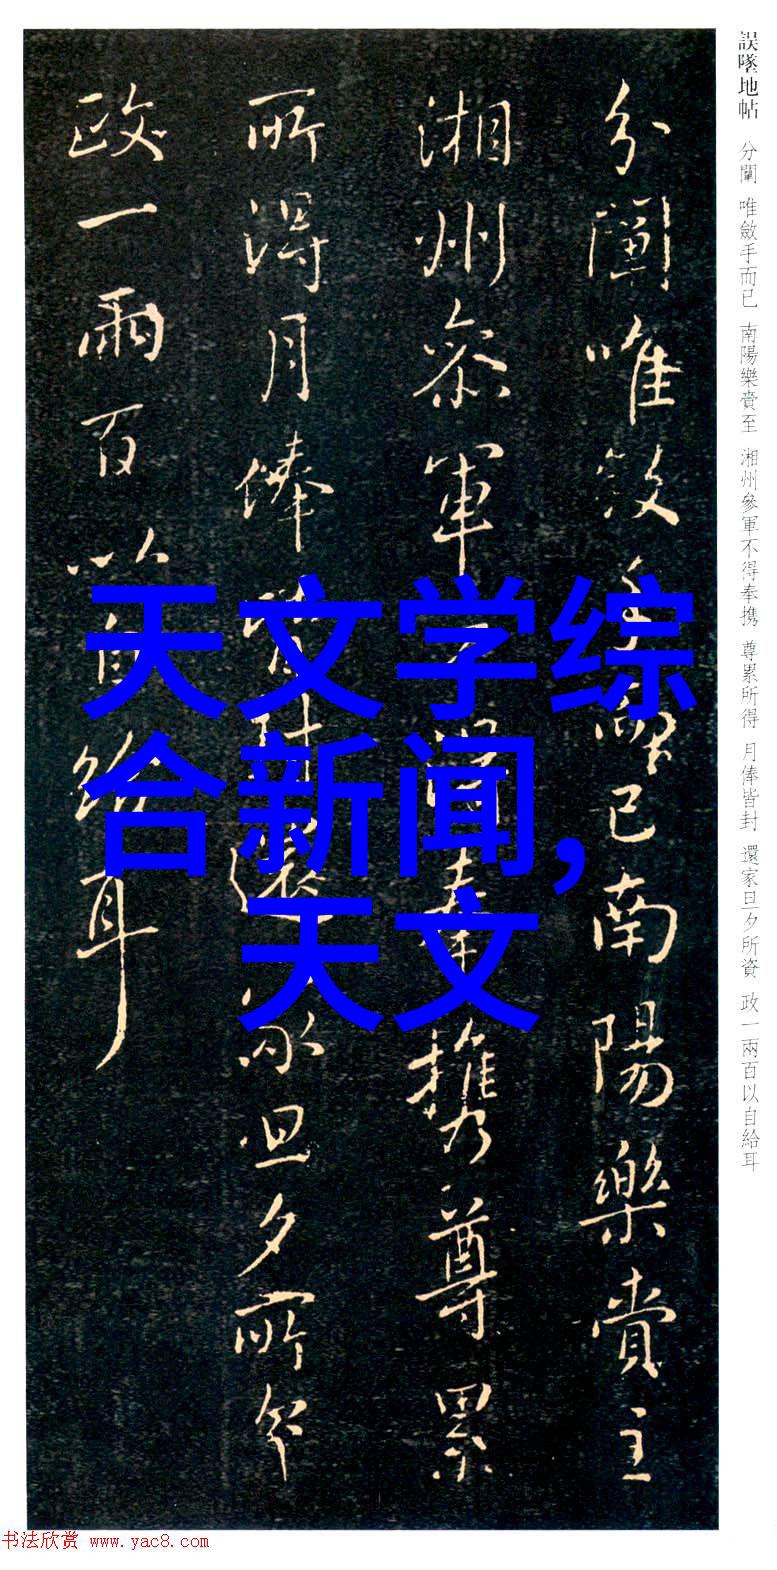 誤墜地帖 分闈 唯斂手而已 南陽樂賁至 湘州參軍不得奉携 尊累所得 月俸皆封 還家旦夕所資 政一兩百以自給耳
分闈唯斂手而已南陽樂賁至
湘州參軍不得奉携尊累
所得月俸皆封還家旦夕所資
政一兩百以自給耳
天文学综
合新闻,
天文
书法欣赏 www.yac8.com